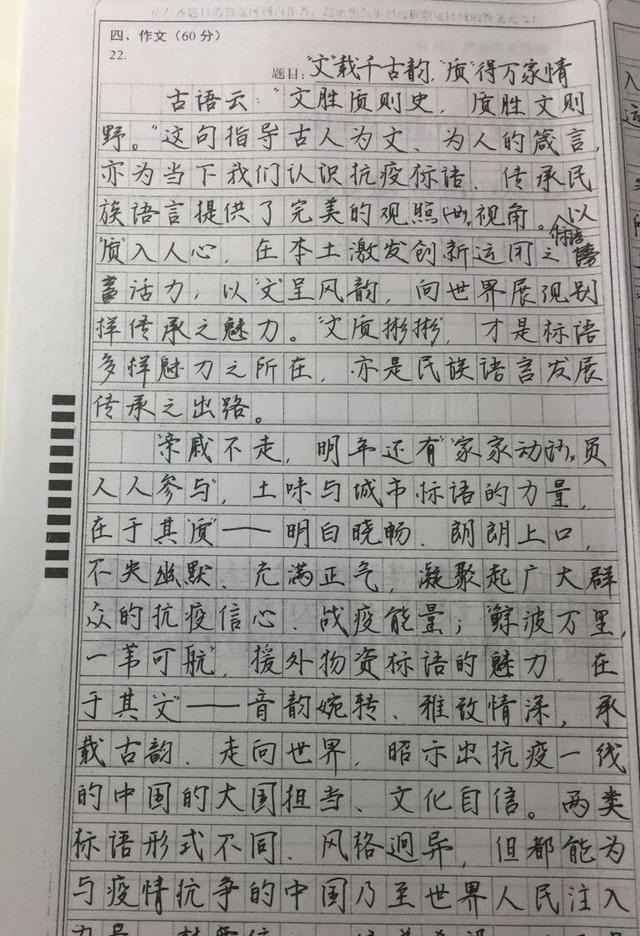 四、作文(60分)
22.
题目:“文”载千古韵 “质”得万家情
古语云:“文胜质则史,质胜文则
野。”这句指导古人为文、为人的箴言,
亦为当下我们认识抗疫标语、传承民
族语言提供了完美的观照视角。以
“质”入人心,在本土激发创新运用之标语
活力;以“文”呈风韵,向世界展现别
样传承之魅力。“文质彬彬”,才是标语
多样魅力之所在,亦是民族语言发展
传承之出路。
“亲戚不走,明年还有”“家家动员
人人参与”,土味与城市标语的力量,
在于其“质”——明白晓畅、朗朗上口,
不失幽默、充满正气,凝聚起广大群
众的抗疫信心、战疫能量;“鲸波万里,
一苇可航”,援外物资标语的魅力,在
于其“文”——音韵婉转、雅致情深,承
载古韵、走向世界,昭示出抗疫一线
的中国的大国担当、文化自信。两类
标语形式不同、风格迥异,但都能为
与疫情抗争的中国乃至世界人民注入